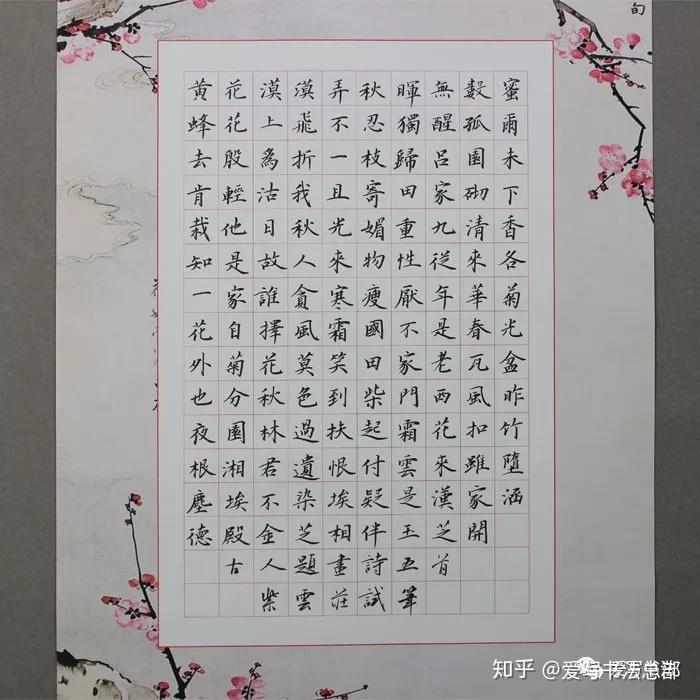 旬
蜜爾未下香各菊光盆昨竹墮涵
數孤園砌清來華春瓦風扣雖家開
無醒呂家九從年是老西花來漢芝首
暉獨歸田重性厭不家門霜雲是王五筆
秋忍枝寄媚物瘦國田柴起付疑伴詩試
弄不一且光來寒霜笑到扶恨埃相畫莊
漠飛折我秋人貪風莫色過遺染芝題雲
漠上為沽日故誰擇花秋林君不金人紫
花花殷輕他是家自菊分園湘埃殿古
黃蜂去肯栽知一花外也夜根塵德
知乎 @爱书法总部